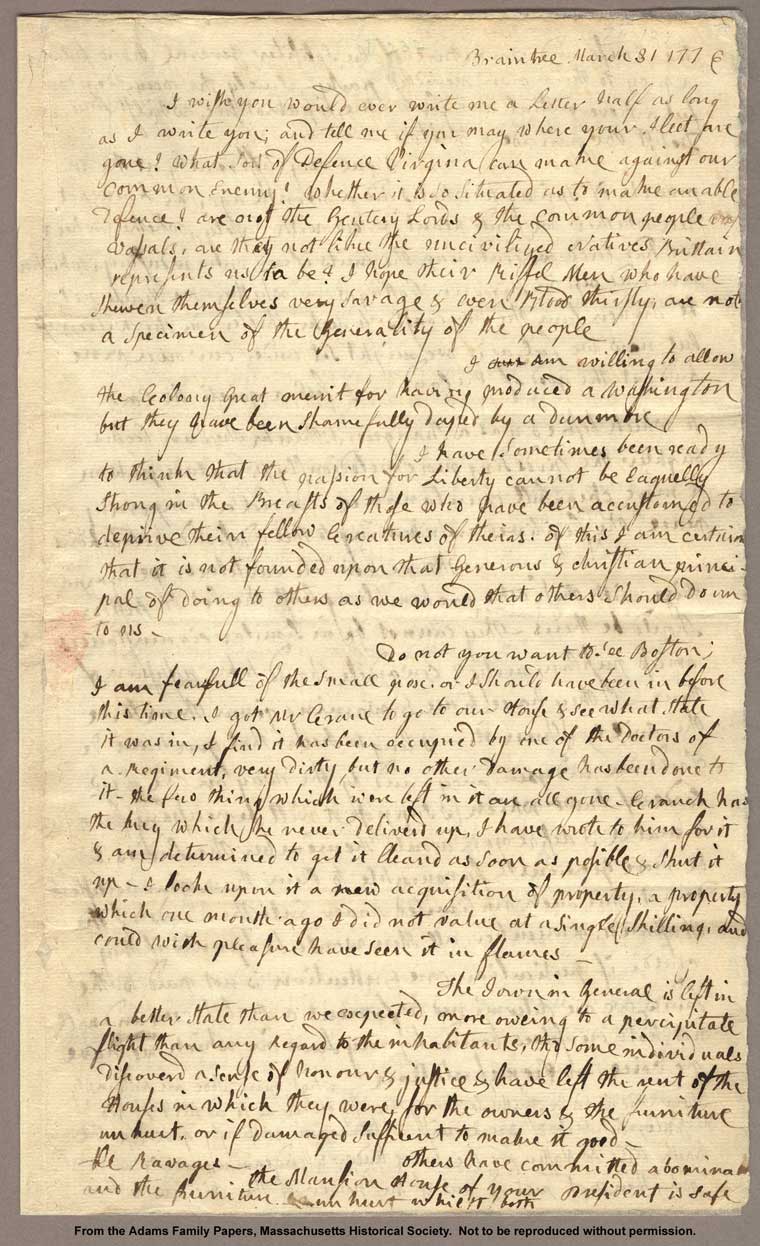 Braintree March 31 1776
I wish you would ever write me a Letter half as long
as I write you; and tell me if you may where your Fleet are
gone? What sort of Defence Virginia can make against our
common Enemy? Whether it is so situated as to make an able
Defence? are not the Gentery Lords & the common people
vassals, are they not like the uncivilized Natives Brittain
represents us to be? I hope their Riffel Men who have
shewen themselves very savage & even Blood thirsty, are not
a specimen of the Generality of the people
I am willing to allow
the Colony great merrit for having produced a Washington
but they have been shamefully duped by a Dunmore
I have sometimes been ready
to think that the passion for Liberty cannot be Eaquelly
strong in the Breasts of those who have been accustomed to
deprive their fellow Creatures of theirs. of this I am certain
that it is not founded upon that Generous & christian princi-
pal of doing to others as we would that others should do unto
to us—
Do not you want to see Boston;
I am fearfull of the small pox. or I should have been in before
this time. I got Mr Crane to go to our House & see what state
it was in, I find it has been occupied by one of the Doctors of
a Regiment, very dirty, but no other damage has been done to
it— the few things which were left in it are all gone— Cranch has
the key which he never deliverd up, I have wrote to him for it
& am determined to get it cleand as soon as posible & shut it
up— I look upon it a new acquisition of property, a property
which one month ago I did not value at a single Shilling, and
could with pleasure have seen it in flames—
The Town in General is left in
a better state than we expected, more oweing to a percipitate
flight than any Regard to the inhabitants, tho some individuals
discoverd a sense of honour & justice & have left the rent of the
Houses in which they were, for the owners & the furniture
unhurt, or if damaged sufficent to make it good—
others have committed abomina
ble Ravages—
the Mansion House of your President is safe
and the furniture unhurt whilst both
From the Adams Family Papers, Massachusetts Historical Society. Not to be reproduced without permission.